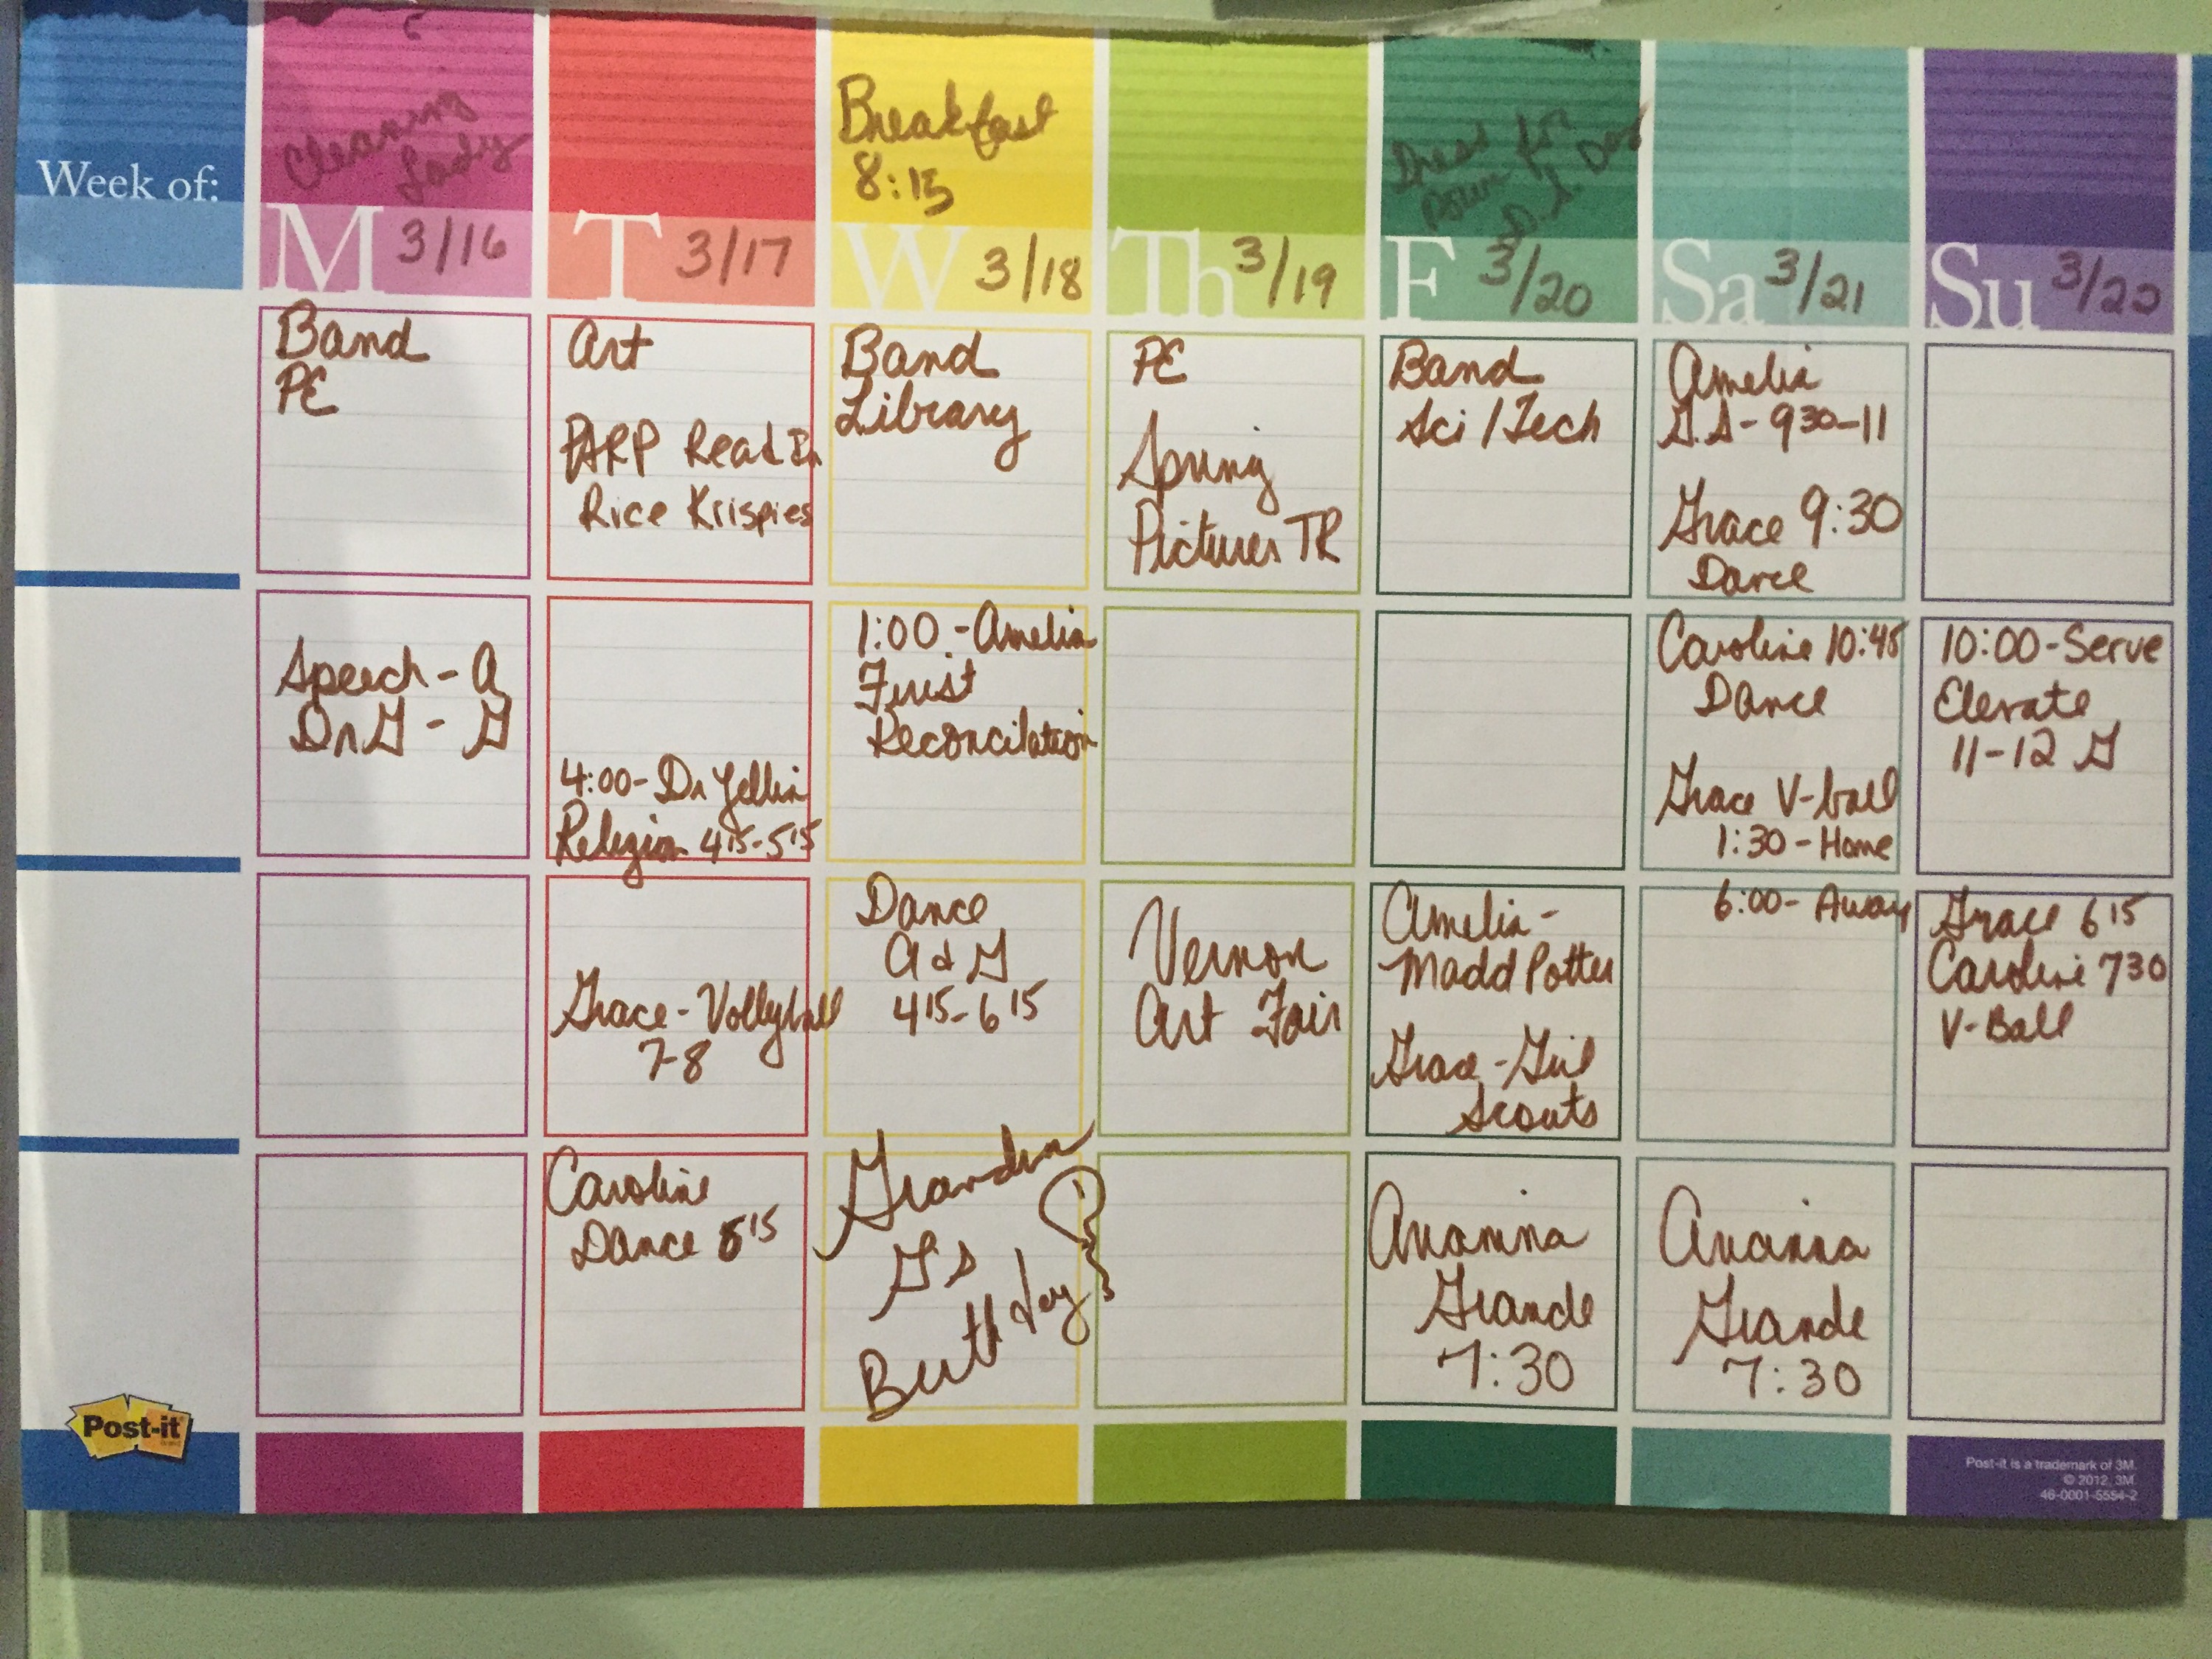 Week of:
Cleaning
Lady
M 3/16
Band
PE
Speech - A
Dr G - G
T 3/17
Art
PARP Read In
Rice Krispies
4:00 - Dr Yellin
Religion 4 15 - 5 15
Grace - Volleyball
7-8
Caroline
Dance 5 15
Breakfast
8:15
W 3/18
Band
Library
1:00 - Amelia
First
Reconcilation
Dance
A & G
4 15 - 6 15
Grandma
G's
Birthday
Th 3/19
PE
Spring
Pictures TR
Vernon
Art Fair
Dress
Down for
D.S. Day
F 3/20
Band
Sci / Tech
Amelia -
Madd Potter
Grace - Girl
Scouts
Arianna
Grande
7:30
Sa 3/21
Amelia
G.S - 9 30 - 11
Grace 9:30
Dance
Caroline 10:45
Dance
Grace V-ball
1:30 - Home
6:00 - Away
Arianna
Grande
7:30
Su 3/22
10:00 - Serve
Elevate
11 - 12 G
Grace 6 15
Caroline 7 30
V-Ball
Post-it
Post-it is a trademark of 3M.
© 2012, 3M.
46-0001-5554-2